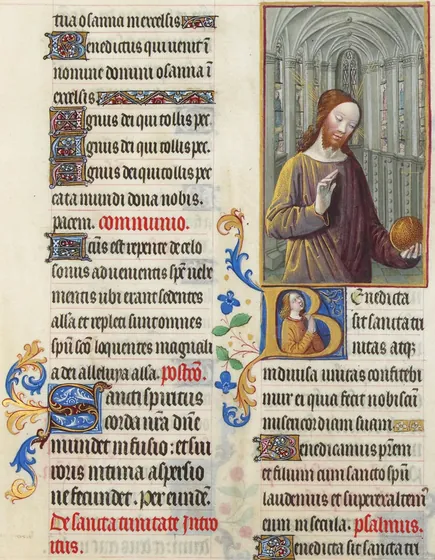 tua osanna in excelsis
Benedictus qui uenit ī
nomine domini osanna ī
excelsis
Agnus dei qui tollis pec.
Agnus dei qui tollis pec.
Agnus dei qui tollis pec
cata mundi dona nobis.
pacem. communio.
Factus est repente de celo
sonus aduenientis spūs uehe
mentis ubi erant sedentes
alła et repleti sunt omnes
spū sc̄o loquentes magnali
a dei alleluya alła. postcō.
Sancti spiritus
corda nr̄a dn̄e
mundet infusio: et sui
roris intima aspersio
ne fecundet. Per eundē.
De sancta trinitate Intro
itus.
Benedicta
sit sancta tri
nitas atq̄
indiuisa unitas confitebi
mur ei quia fecit nobiscū
misericordiam suam
Benedicamus pr̄em
et filium cum sancto spū
laudemus et superexaltem
eum in secula. psalmus.
Benedicta sit sancta tri